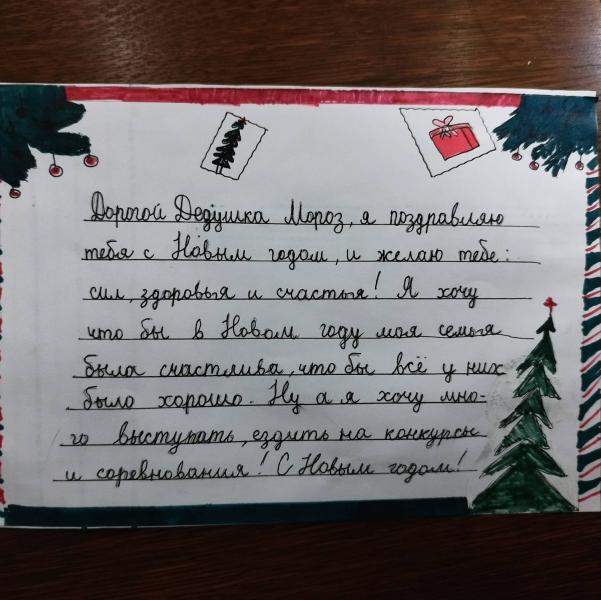 Дорогой Дедушка Мороз, я поздравляю
тебя с Новым годом, и желаю тебе:
сил, здоровья и счастья! Я хочу
что бы в Новом году моя семья
была счастлива, что бы всё у них
было хорошо. Ну а я хочу мно-
го выступать, ездить на конкурсы
и соревнования! С Новым годом!